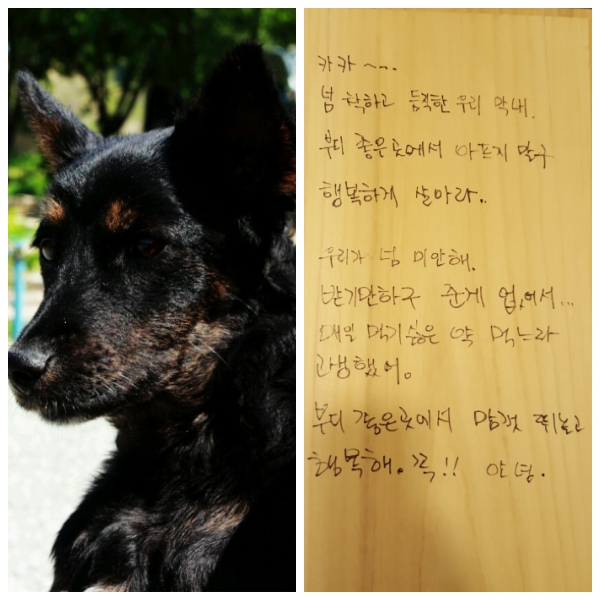 카카 ~...
넘 착하고 듬직한 우리 막내.
부디 좋은곳에서 아프지 말구
행복하게 살아라..
우리가 넘 미안해.
받기만하구 준게 없어서...
매일 먹기싫은 약 먹느라
고생했어.
부디 좋은곳에서 맘껏 뛰놀고
행복해. 꼭!! 안녕.